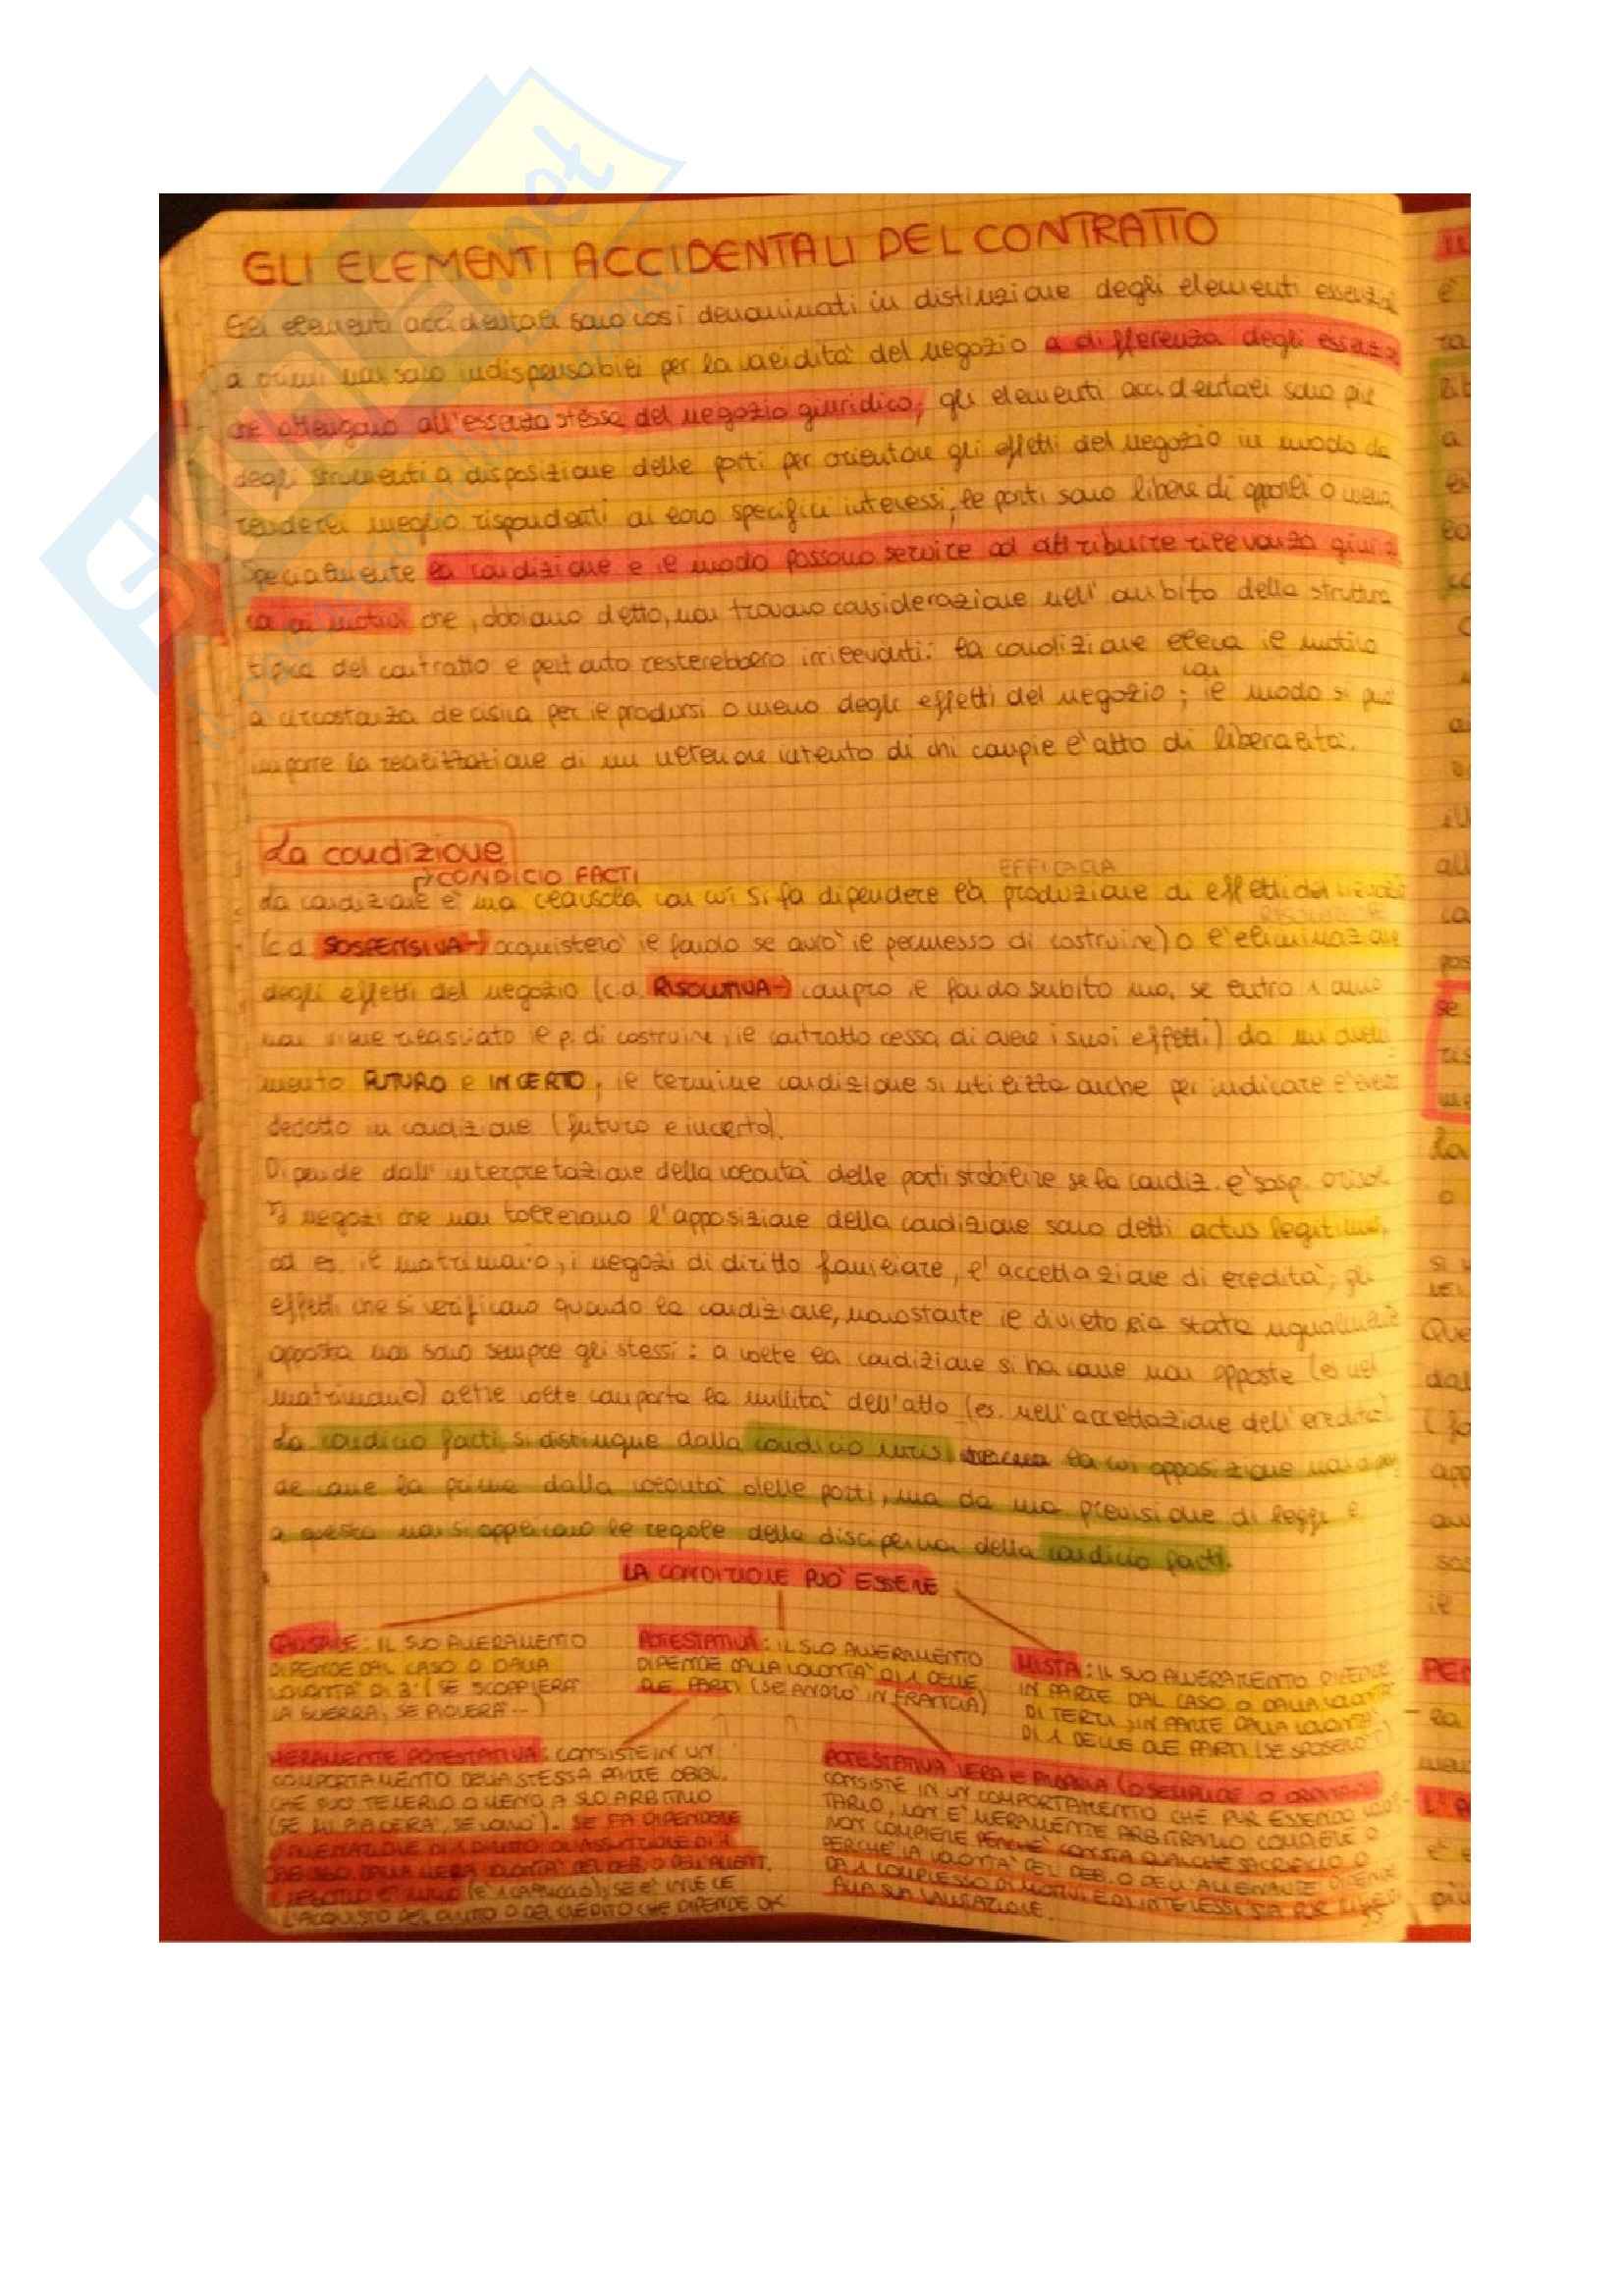 GLI ELEMENTI ACCIDENTALI DEL CONTRATTO
Gli elementi accidentali sono così denominati in distinzione degli elementi essenzia
non sono indispensabili per la validità del negozio a differenza degli essenz
che attengono all'essenza stessa del negozio giuridico; gli elementi accidentali sono più
degli strumenti a disposizione delle parti per orientare gli effetti del negozio in modo da
renderli meglio rispondenti ai loro specifici interessi, le parti sono libere di apporli o meno.
Specialmente la condizione e il modo possono servire ad attribuire rilevanza giuri
ca ai motivi che, abbiamo detto, non trovano considerazione nell'ambito della struttura
tipica del contratto e pertanto resterebbero irrilevanti: la condizione eleva il motivo
con
a circostanza decisiva per il prodursi o meno degli effetti del negozio; il modo si può
imporre la realizzazione di un ulteriore intento di chi compie l'atto di liberalità.
La condizione
CONDICIO FACTI
EFFICACIA
La condizione è una clausola con cui si fa dipendere la produzione di effetti del negozio
(c.d. SOSPENSIVA→ acquisterò il fondo se avrò il permesso di costruire) o l'eliminazione
degli effetti del negozio (c.d. RISOLUTIVA→ compro il fondo subito ma, se entro 1 anno
non viene rilasciato il p. di costruire, il contratto cessa di avere i suoi effetti) da un avveni
mento FUTURO e INCERTO, il termine condizione si utilizza anche per indicare l'evento
dedotto in condizione (futuro e incerto).
Dipende dall'interpretazione della volontà delle parti stabilire se la condiz. è sosp. o risol.
I negozi che non tollerano l'apposizione della condizione sono detti actus legitimi,
ad es. il matrimonio, i negozi di diritto familiare, l'accettazione di eredità; gli
effetti che si verificano quando la condizione, nonostante il divieto sia stata ugualmente
apposta non sono sempre gli stessi: a volte la condizione si ha come non apposta (es nel
matrimonio) altre volte comporta la nullità dell'atto (es. nell'accettazione dell'eredità)
La condicio facti si distingue dalla condicio iuris la cui apposizione non dipen
de come la prima dalla volontà delle parti, ma da una previsione di legge e
a questa non si applicano le regole della disciplina della condicio facti.
LA CONDIZIONE PUÒ ESSERE
CAUSALE: IL SUO AVVERAMENTO
DIPENDE DAL CASO O DALLA
VOLONTÀ DI 3i (SE SCOPPIERÀ
LA GUERRA, SE PIOVERÀ...)
POTESTATIVA: IL SUO AVVERAMENTO
DIPENDE DALLA VOLONTÀ DI 1 DELLE
DUE PARTI (SE ANDRÒ IN FRANCIA)
MISTA: IL SUO AVVERAMENTO DIPENDE
IN PARTE DAL CASO O DALLA VOLONTÀ
DI TERZI, IN PARTE DALLA VOLONTÀ
DI 1 DELLE DUE PARTI (SE SPOSERÒ T)
MERAMENTE POTESTATIVA: CONSISTE IN UN
COMPORTAMENTO DELLA STESSA PARTE OBBL.
CHE PUÒ TENERLO O MENO A SUO ARBITRIO
(SE MI PIACERÀ, SE VORRÒ). SE FA DIPENDERE
L'ALIENAZIONE DI 1 DIRITTO O L'ASSUNZIONE DI 1
OBBLIGO DALLA MERA VOLONTÀ DEL DEB. O DELL'ALIENT.
IL NEGOZIO È NULLO SE È INVECE
L'ACQUISTO DEL DIRITTO O DEL CREDITO CHE DIPENDE DA
POTESTATIVA VERA E PROPRIA (O SEMPLICE O ORDINARIA)
CONSISTE IN UN COMPORTAMENTO CHE PUR ESSENDO VOLON-
TARIO, NON È MERAMENTE ARBITRARIO COMPIERE O
NON COMPIERE PERCHÉ COSTA QUALCHE SACRIFICIO O
PERCHÉ LA VOLONTÀ DEL DEB. O DELL'ALIENANTE DIPENDE
DA 1 COMPLESSO DI MOTIVI E DI INTERESSI SIA PUR
ALLA SUA VALUTAZIONE.